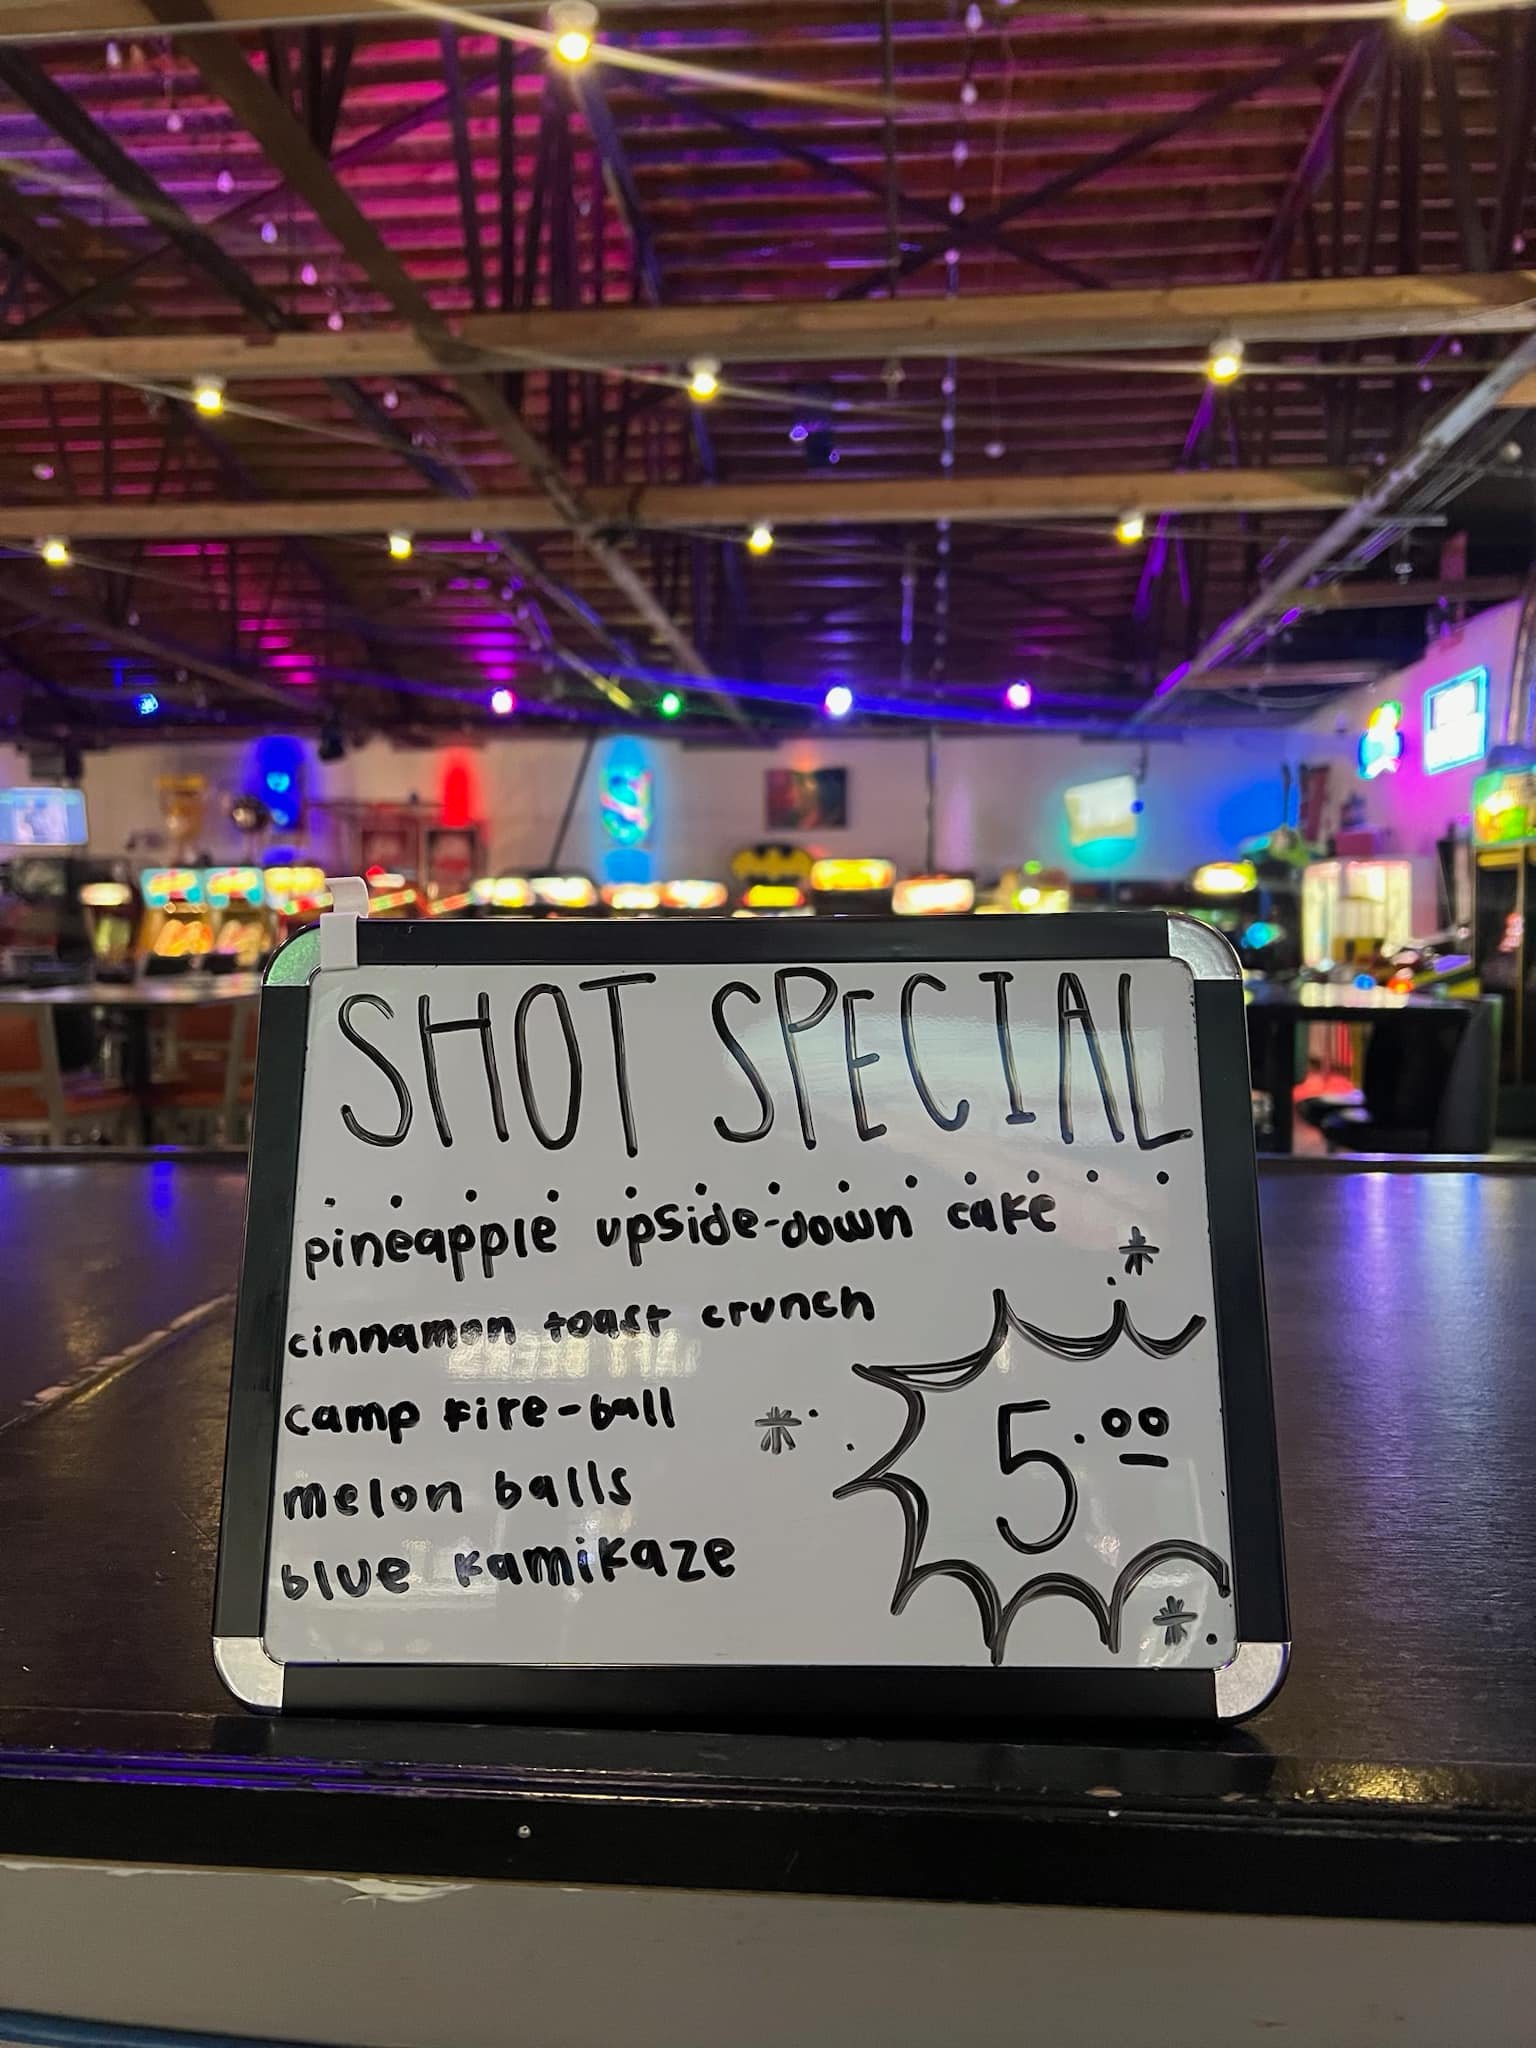 SHOT SPECIAL
pineapple upside-down cake
cinnamon toast crunch
camp fire-ball
melon balls
blue kamikaze
5.00